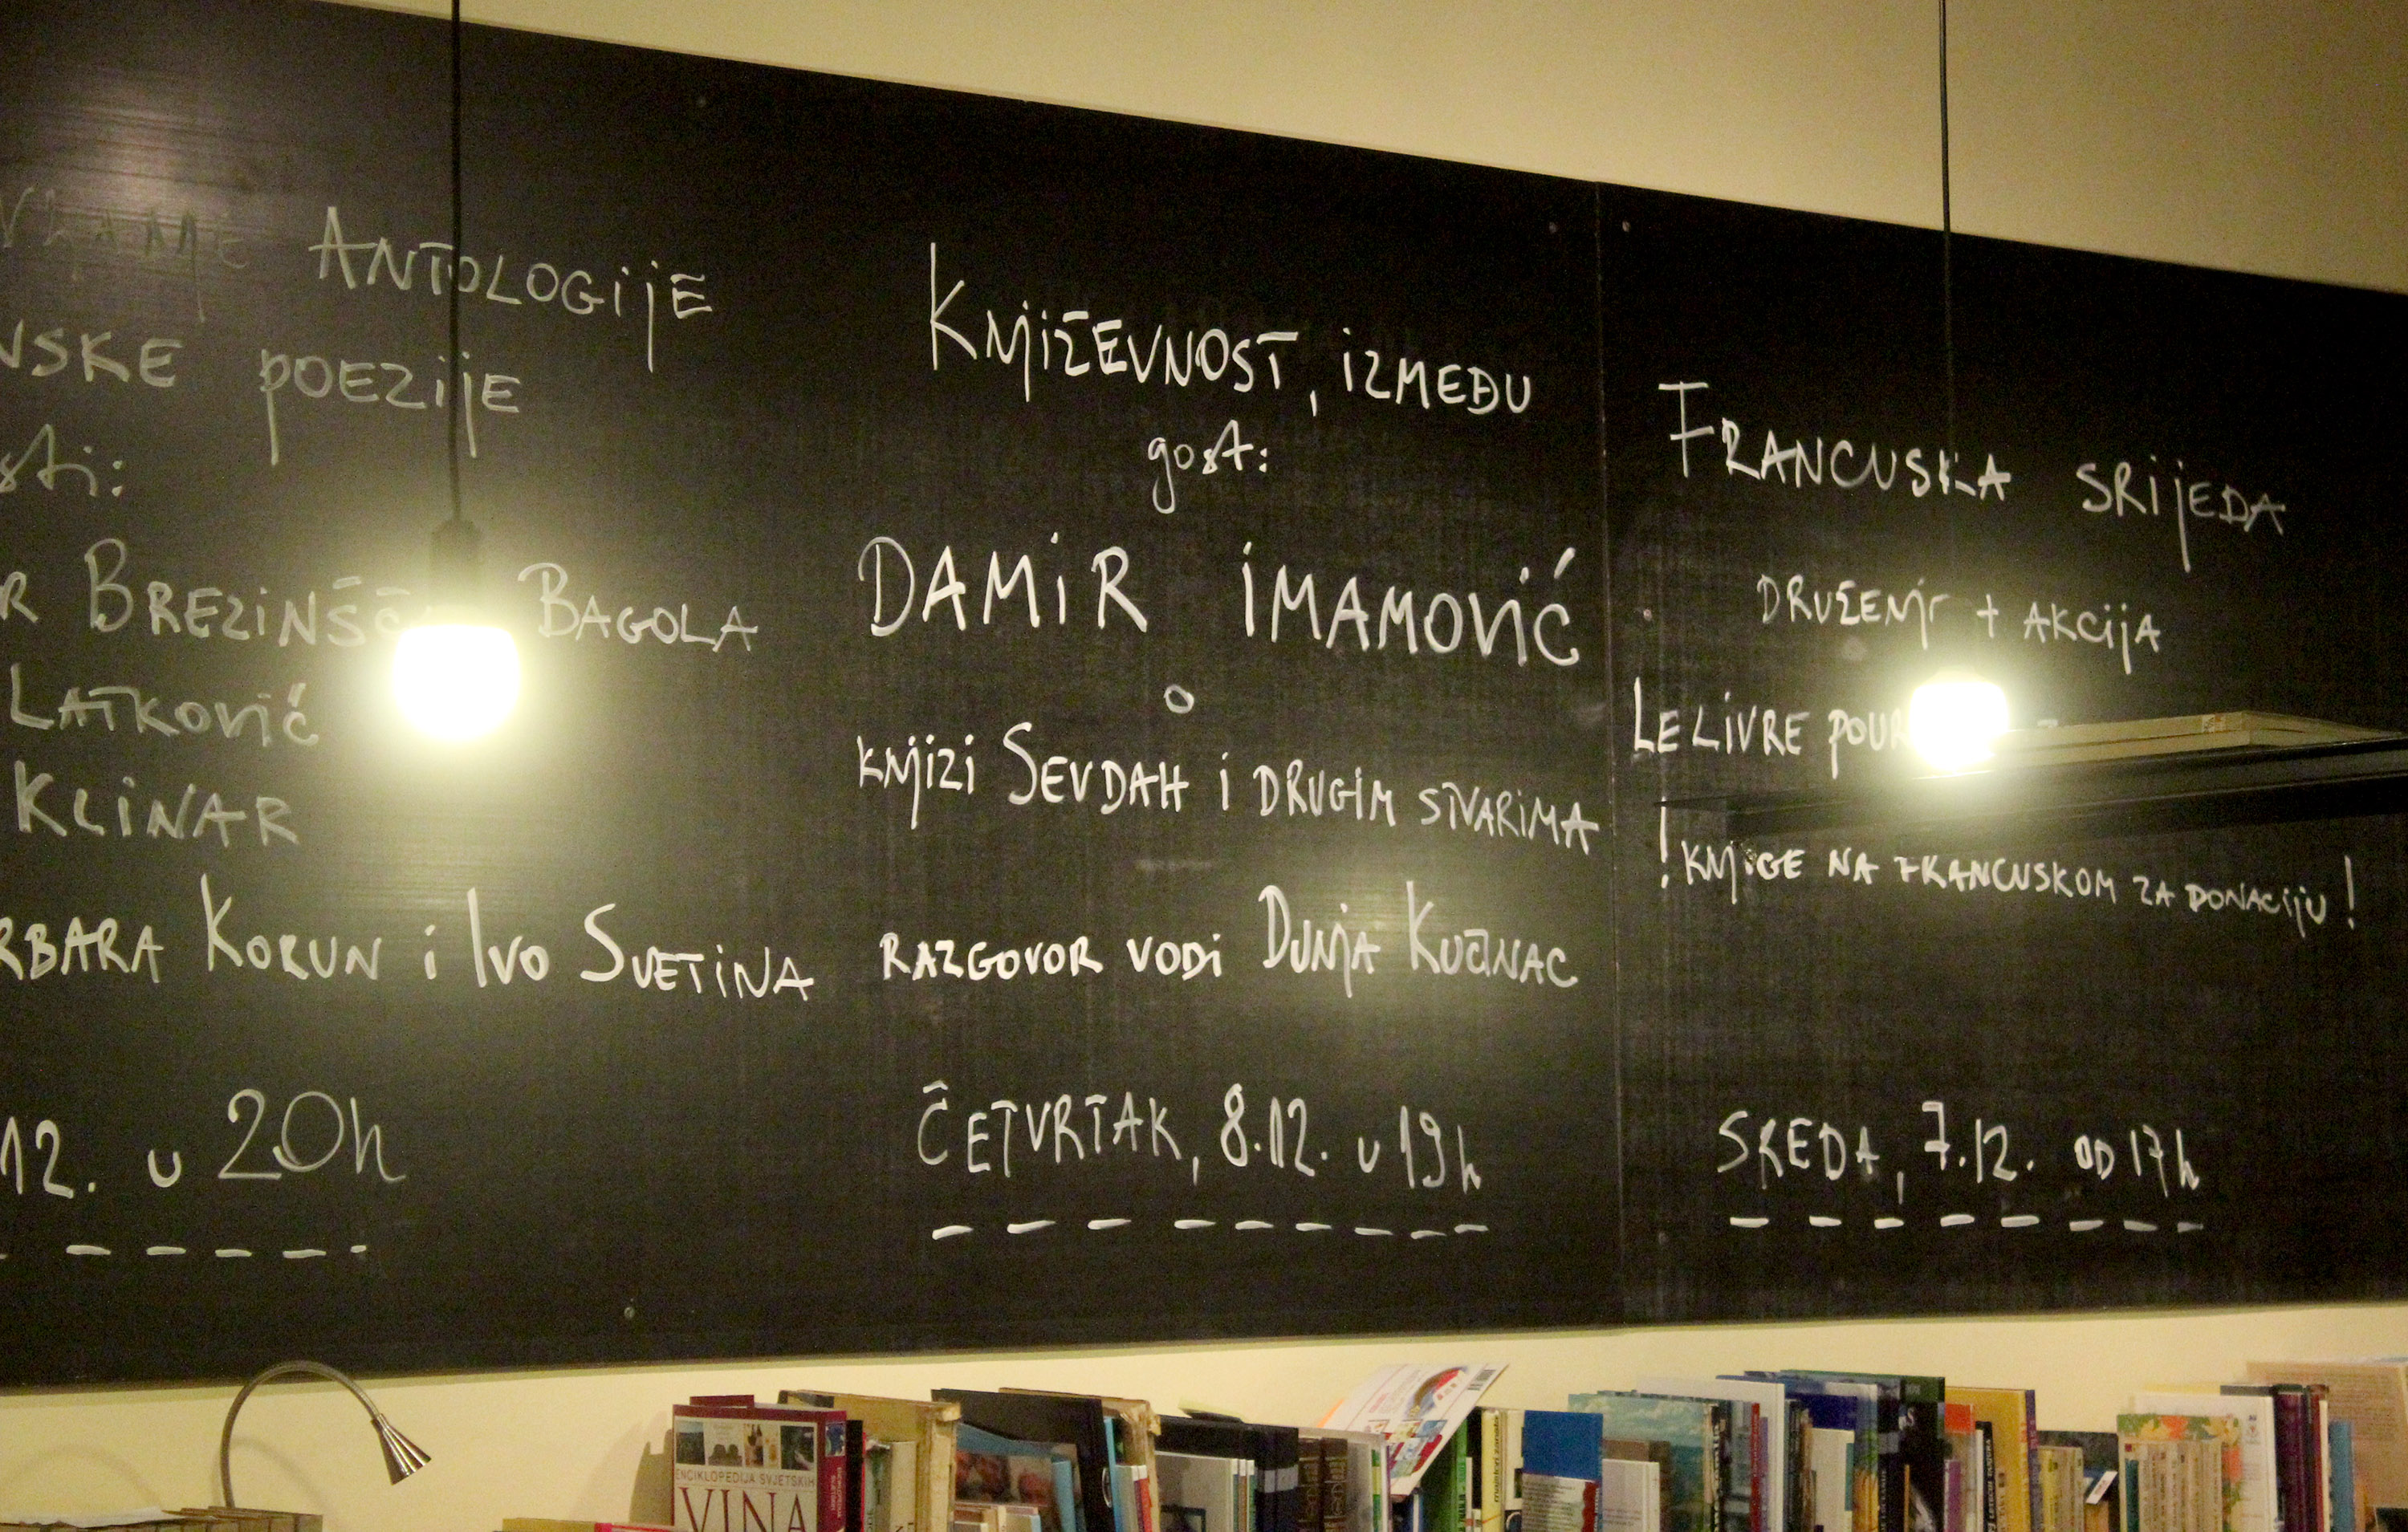 ANTOLOGIJE
POEZIJE
BAGOLA
LATKOVIĆ
KLINAR
KORUN i IVO SVETINA
12. u 20h
KNJIŽEVNOST, IZMEĐU
gost:
DAMIR IMAMOVIĆ
o
KNJIZI SEVDAH i DRUGIM STVARIMA
RAZGOVOR VODI DUNJA KUČINAC
ČETVRTAK, 8.12. u 19h
FRANCUSKA SRIJEDA
DRUŽENJE + AKCIJA
LE LIVRE POUR
! KNJIGE NA FRANCUSKOM ZA DONACIJU !
SREDA, 7.12. OD 17h
ENCIKLOPEDIJA SVJETSKIH
VINA